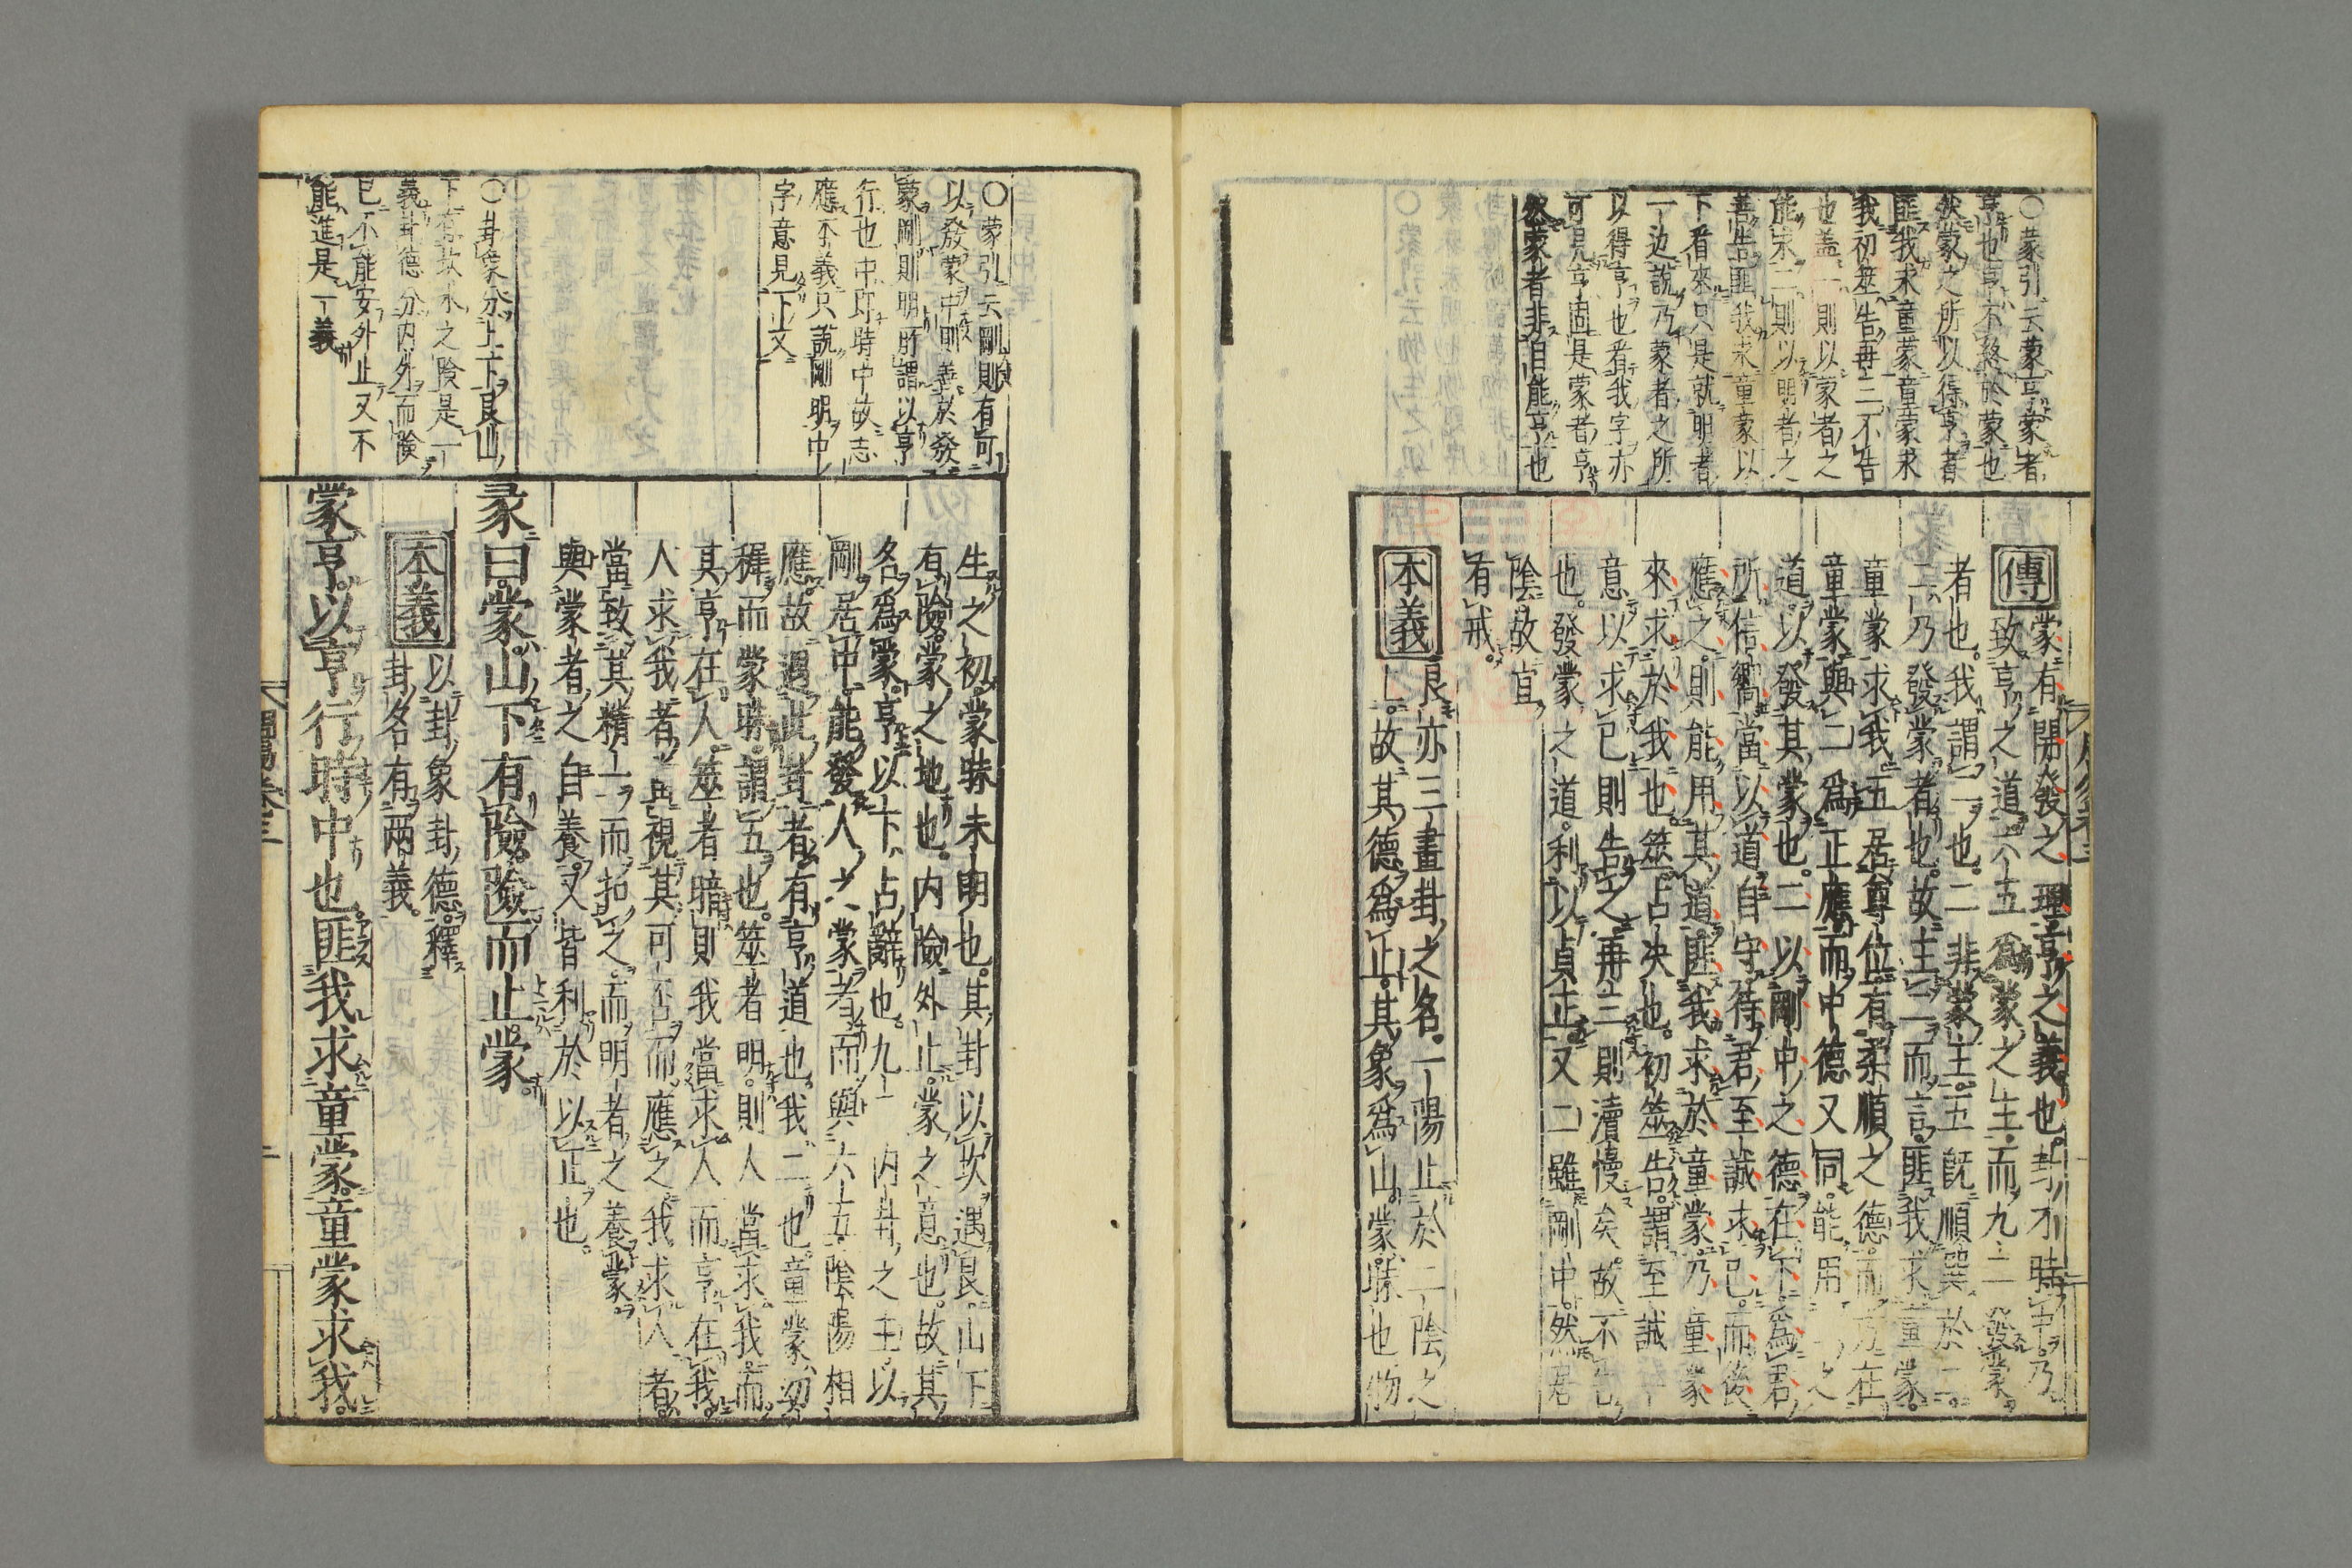 ○蒙引云蒙亨蒙者
亨也亨不終於蒙也
然蒙之所以得亨者
匪我求童蒙童蒙求
我初筮告再三不告
也盖一則以蒙者之
能求二則以明者之
善告匪我求童蒙以
下看來只是就明者
一边說乃蒙者之所
以得亨也看我字亦
可見亨固是蒙者亨
然蒙者非自能亨也
傳
蒙有開發之理亨之義也。卦才時中。乃
致亨之道。六五為蒙之主。而九二發蒙
者也。我謂二也。二非蒙主。五既順巽於
二。乃發蒙者也。故主二而言。匪我求童蒙。
童蒙求我。五居尊位。有柔順之德。而方在
童蒙。與二為正應。而中德又同。能用二之
道。以發其蒙也。二以剛中之德在下。為君
所信嚮。當以道自守。待君至誠求已。而後
應之。則能用其道。匪我求於童蒙。乃童蒙
來求於我也。筮。占决也。初筮告。謂至誠一
意以求已則告之。再三則瀆慢矣。故不告
也。發蒙之道。利以貞正。又二雖剛中。然居
陰。故宜
有戒。
本義
艮亦三畫卦之名。一陽止於二陰之
上。故其德為止。其象為山。蒙昧也。物
○蒙引云剛則有可
以發蒙中則善於發
蒙剛則明所謂以亨
行也中即時中故志
應本義只說剛明中
字意見下文
○卦象分上下艮山
下有坎水之險是一
義卦德分内外而險
已不能安外止又不
能進是一義
生之初。蒙昧未明也。其卦以坎遇艮。山下
有險。蒙之地也。内險外止。蒙之意也。故其
名為蒙。亨以下。占辭也。九二内卦之主。以
剛居中。能發人之蒙者。而與六五陰陽相
應。故遇此卦者。有亨道也。我。二也。童蒙。幼
穉而蒙昧。謂五也。筮者明。則人當求我。而
其亨在人。筮者暗。則我當求人。而亨在我。
人求我者。當視其可否而應之。我求人者。
當致其精一而扣之。而明者之養蒙。
與蒙者之自養。又皆利於以正也。
彖曰。蒙。山下有險。險而止。蒙。
本義
以卦象卦德。釋
卦名。有兩義。
蒙亨。以亨行時中也。匪我求童蒙。童蒙求我。
周易卷三